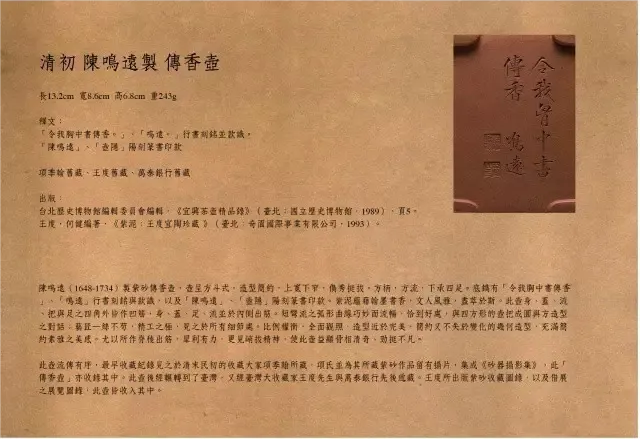 清初 陳鳴遠製 傳香壺
長13.2cm 寬8.6cm 高6.8cm 重243g
釋文：
「令我胸中書傳香。」、「鳴遠。」行書刻銘並款識。
「陳鳴遠」、「壺隱」陽刻篆書印款
項季翰舊藏、王度舊藏、萬泰銀行舊藏
出版：
台北歷史博物館編輯委員會編輯，《宜興茶壺精品錄》（臺北：國立歷史博物館，1989），頁5。
王度，何健編著，《紫泥：王度宜陶珍藏》（臺北：奇園國際事業有限公司，1993）。
令我胸中書
傳香 鳴遠
陳鳴遠（1648-1734）製紫砂傳香壺，壺呈方斗式，造型簡約，上寬下窄，儁秀挺拔。方柄，方流，下承四足。底鐫有「令我胸中書傳香
」、「鳴遠」行書刻銘與款識，以及「陳鳴遠」、「壺隱」陽刻篆書印款。紫泥蘊藉翰墨書香，文人風雅，盡萃於斯。此壺身、蓋、流
、把與足之四角外皆作凹筋，身、蓋、足、流並於內側出筋。短彎流之弧形曲線巧妙而流暢，恰到好處，與四方形的壺把成圓與方造型
之對話。藝匠一絲不苟，精工之極，見之於所有細節處。比例權衡，全面觀照，造型近於完美。簡約又不失於變化的幾何造型，充滿簡
約素雅之美感。尤以所作脊棱出筋，犀利有力，更見峭拔精神，使此壺益顯骨相清奇、勁挺不凡。
此壺流傳有序，最早收藏紀錄見之於清末民初的收藏大家項季翰所藏，項氏並為其所藏紫砂作品留有攝片，集成《砂器攝影集》，此「
傳香壺」亦收錄其中。此壺後經輾轉到了臺灣，又經臺灣大收藏家王度先生與萬泰銀行先後遞藏。王度所出版紫砂收藏圖錄，以及借展
之展覽圖錄，此壺皆收入其中。